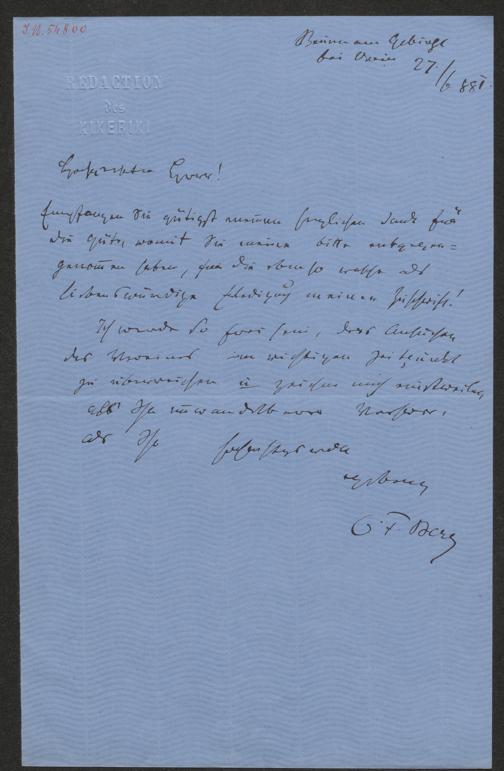 I.N. 54800
Brunn am Gebirge
bei Wien 27./6 881.
REDACTION
des
KIKERIKI
Geehrtester Herr!
Empfangen Sie gütigst meinen herzlichen Dank für
die Güte, womit Sie meine Bitte entgegen=
genommen haben, für die ebenso rasche als
liebenswürdige Erledigung meiner Zuschrift!
Ich werde so frei sein, das Ansuchen
des Vereines im richtigen Zeitpunkt
zu überreichen u zeichne mich einstweilen
als Ihr unwandelbarer Verehrer,
als Ihr hochachtungsvollst
ergebener
O. F. Berg